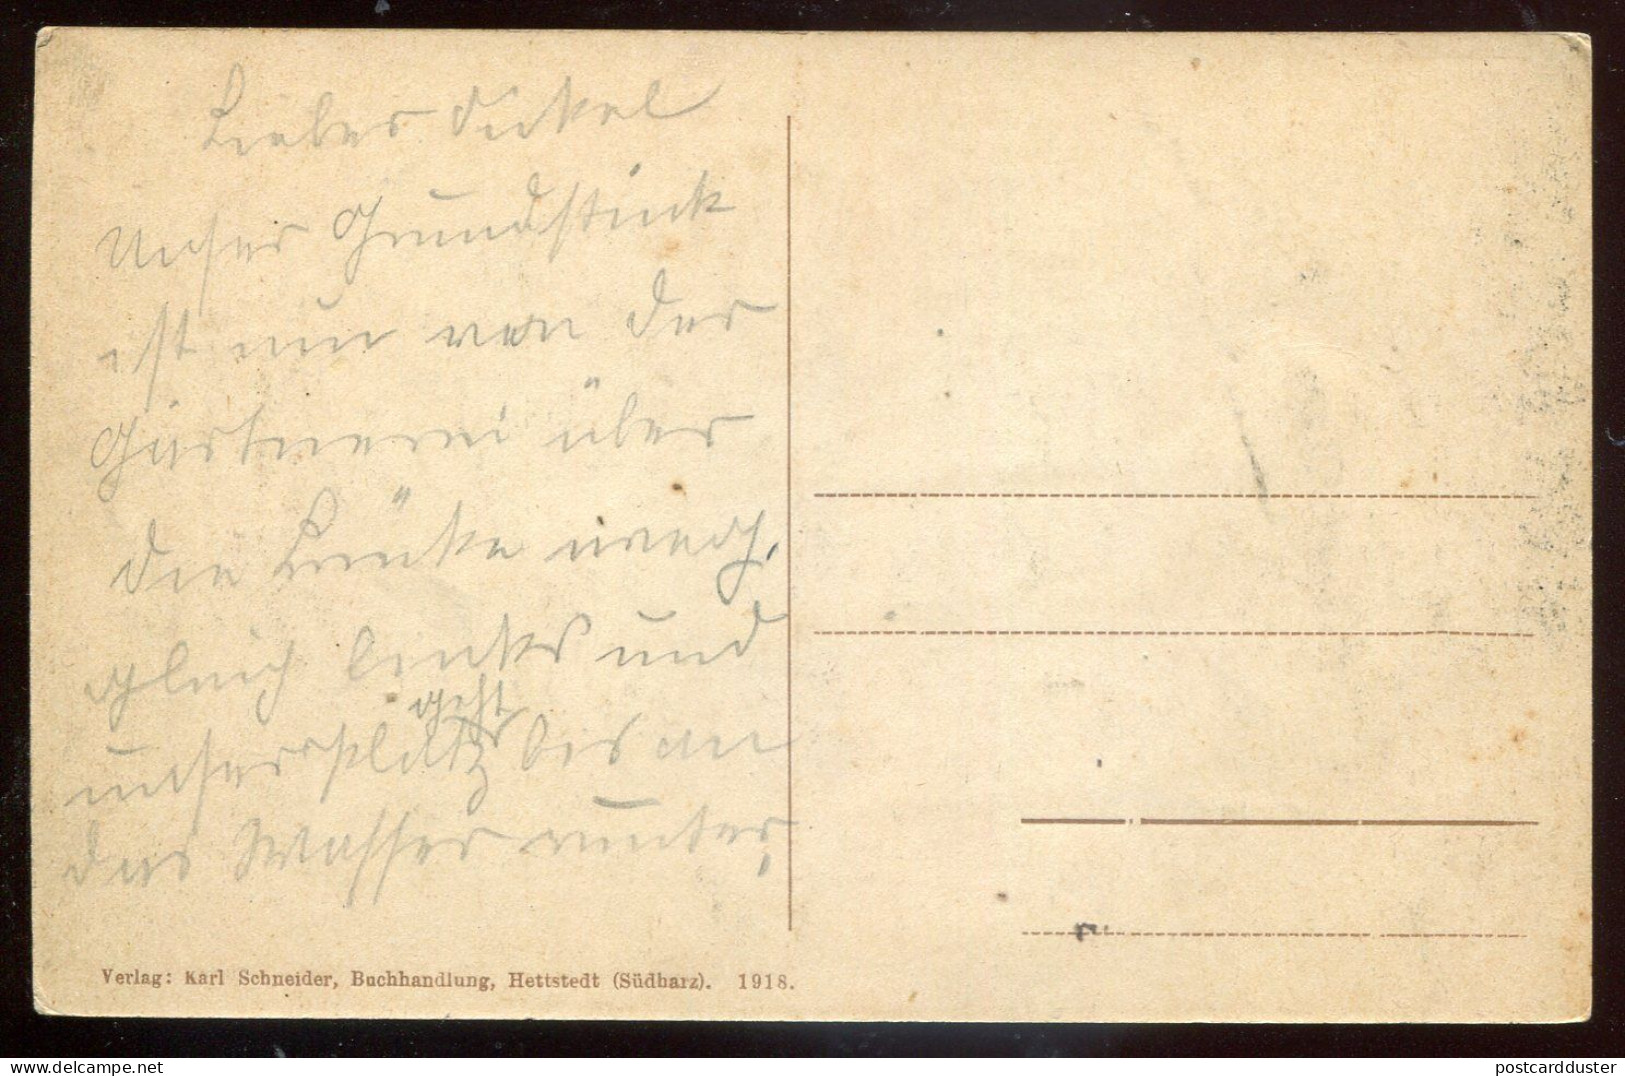 Lieber Onkel
Unser Grundstück
ist nun von der
Gärtnerei über
die Brücke weg,
gleich links und
geht
unser platz bis an
das Wasser runter,
Verlag: Karl Schneider, Buchhandlung, Hettstedt (Südharz). 1918.
postcardduster